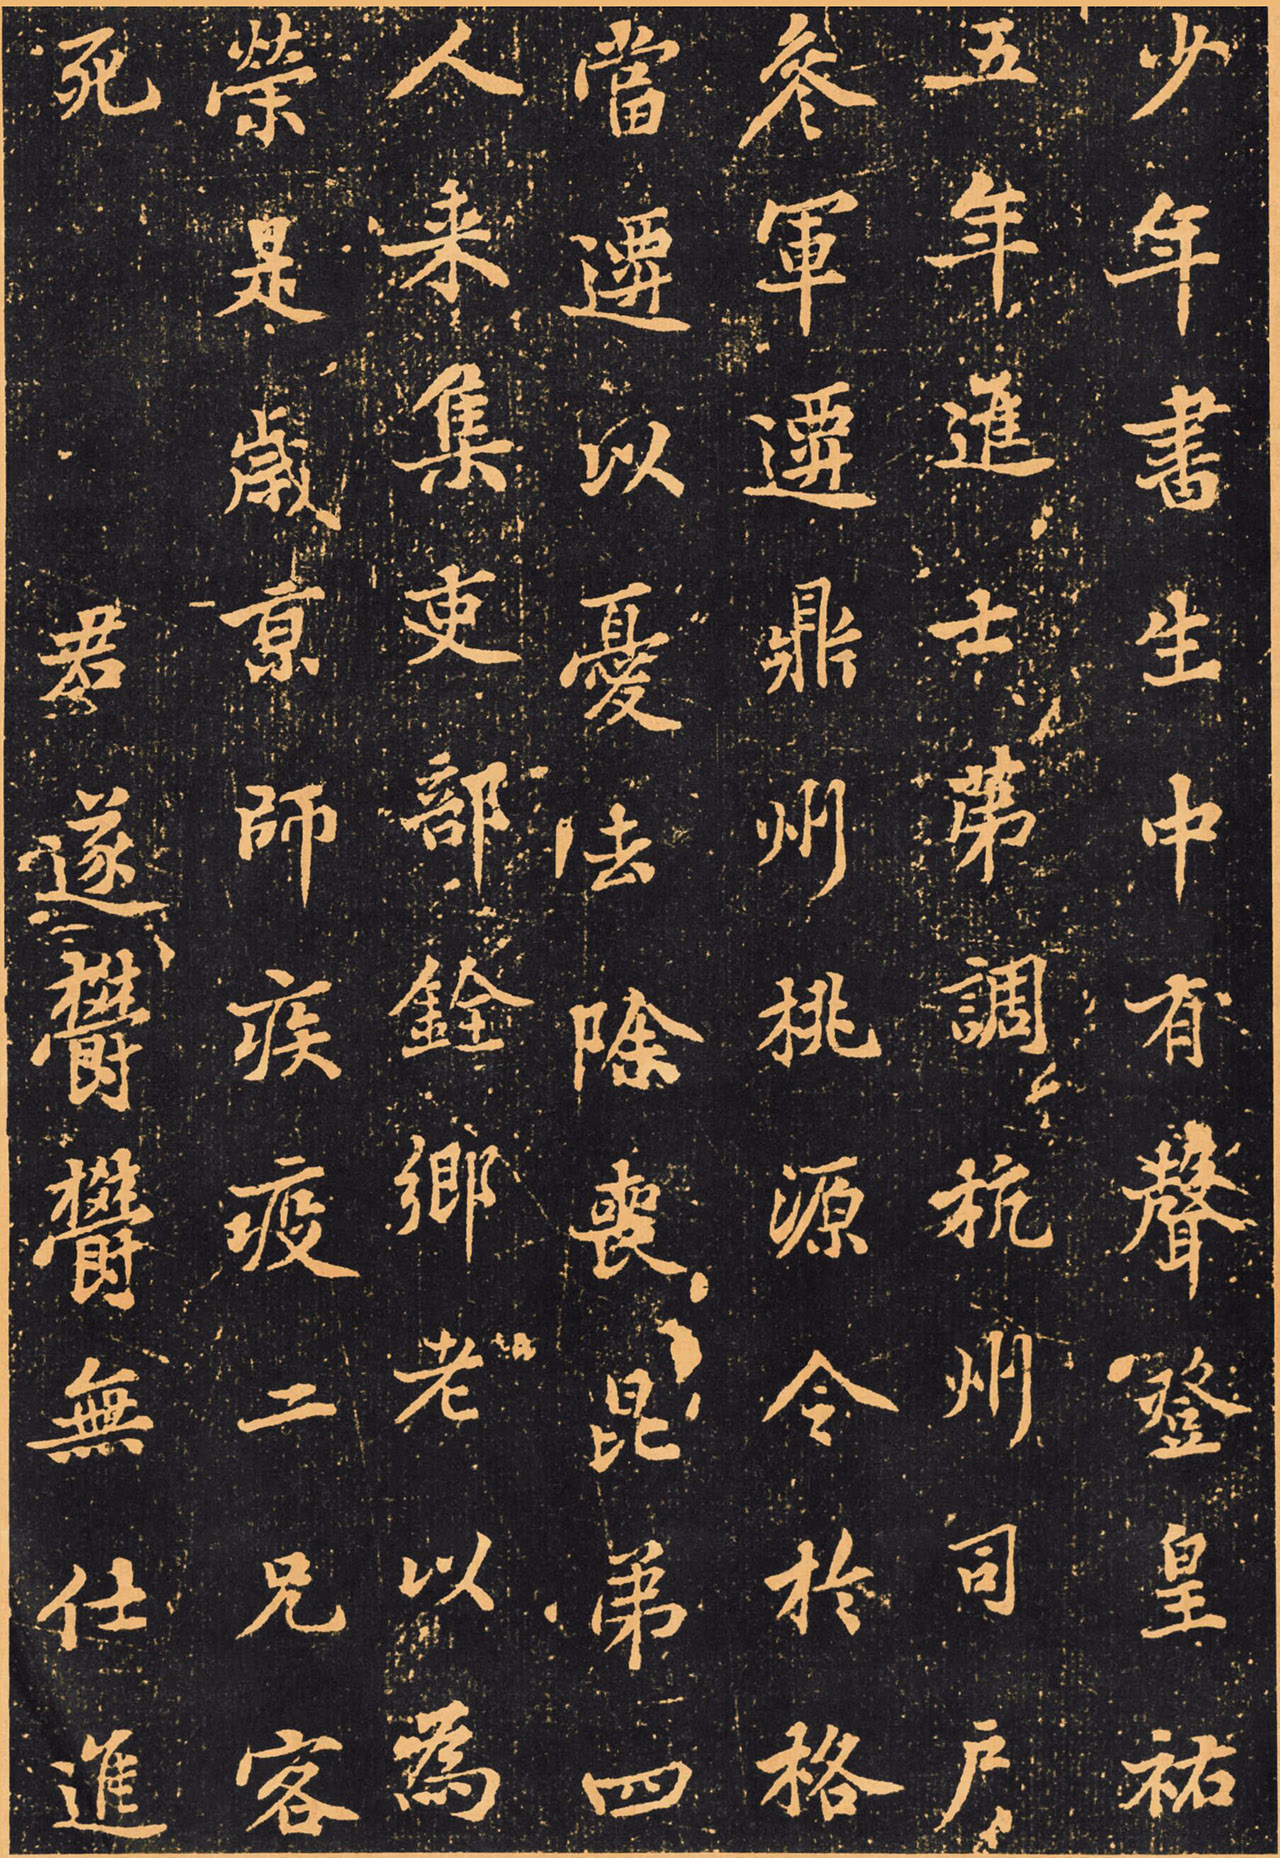 少年書生中有聲登皇祐
五年進士第調杭州司户
叅軍遷鼎州桃源令於格
當遷以憂去除喪昆弟四
人来集吏部銓鄉老以為
榮是歲京師疾疫二兄客
死君遂鬱鬱無仕進